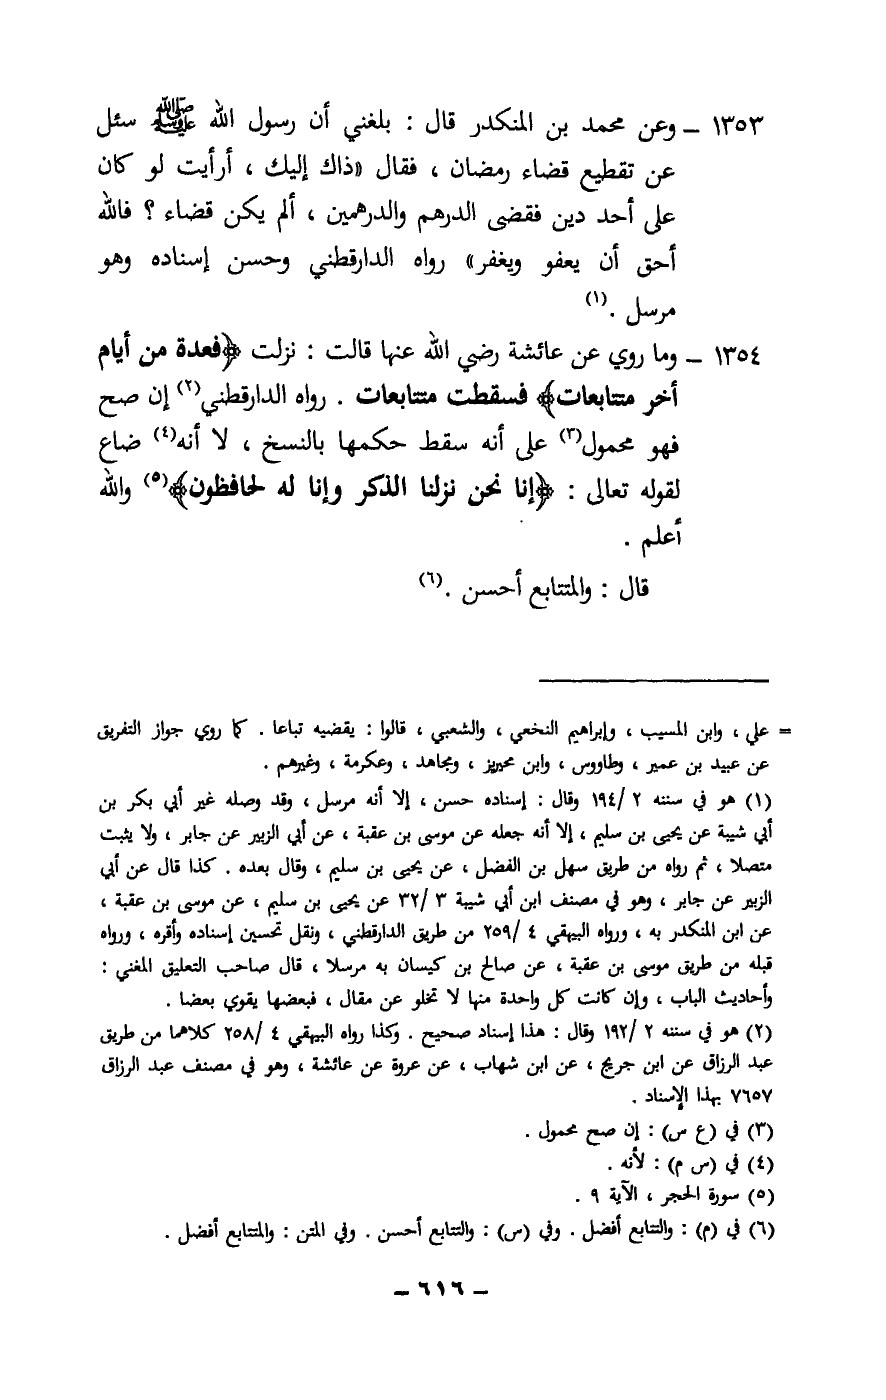 ١٣٥٣ ـ وعن محمد بن المنكدر قال : بلغني أن رسول الله ﷺ سئل
عن تقطيع قضاء رمضان ، فقال «ذاك إليك ، أرأيت لو كان
على أحد دين فقضى الدرهم والدرهمين ، ألم يكن قضاء ؟ فالله
أحق أن يعفو ويغفر» رواه الدارقطني وحسن إسناده وهو
مرسل .(١)
١٣٥٤ ـ وما روي عن عائشة رضي الله عنها قالت : نزلت ﴿فعدة من أيام
أخر متتابعات﴾ فسقطت متتابعات . رواه الدارقطني(٢) إن صح
فهو محمول(٣) على أنه سقط حكمها بالنسخ ، لا أنه(٤) ضاع
لقوله تعالى : ﴿إنا نحن نزلنا الذكر وإنا له لحافظون﴾(٥) والله
أعلم .
قال : والمتتابع أحسن .(٦)
= علي ، وابن المسيب ، وإبراهيم النخعي ، والشعبي ، قالوا : يقضيه تباعا . كما روي جواز التفريق
عن عبيد بن عمير ، وطاووس ، وابن محيريز ، ومجاهد ، وعكرمة ، وغيرهم .
(١) هو في سننه ٢ /١٩٤ وقال : إسناده حسن ، إلا أنه مرسل ، وقد وصله غير أبي بكر بن
أبي شيبة عن يحيى بن سليم ، إلا أنه جعله عن موسى بن عقبة ، عن أبي الزبير عن جابر ، ولا يثبت
متصلا ، ثم رواه من طريق سهل بن الفضل ، عن يحيى بن سليم ، وقال بعده . كذا قال عن أبي
الزبير عن جابر ، وهو في مصنف ابن أبي شيبة ٣ /٣٢ عن يحيى بن سليم ، عن موسى بن عقبة ،
عن ابن المنكدر به ، ورواه البيهقي ٤ /٢٥٩ من طريق الدارقطني ، ونقل تحسين إسناده وأقره ، ورواه
قبله من طريق موسى بن عقبة ، عن صالح بن كيسان به مرسلا ، قال صاحب التعليق المغني :
وأحاديث الباب ، وإن كانت كل واحدة منها لا تخلو عن مقال ، فبعضها يقوي بعضا .
(٢) هو في سننه ٢ /١٩٢ وقال : هذا إسناد صحيح . وكذا رواه البيهقي ٤ /٢٥٨ كلاهما من طريق
عبد الرزاق عن ابن جريج ، عن ابن شهاب ، عن عروة عن عائشة ، وهو في مصنف عبد الرزاق
٧٦٥٧ بهذا الإسناد .
(٣) في (ع س) : إن صح محمول .
(٤) في (س م) : لأنه .
(٥) سورة الحجر ، الآية ٩ .
(٦) في (م) : والتتابع أفضل . وفي (س) : والتتابع أحسن . وفي المتن : والمتتابع أفضل .
ـ ٦١٦ ـ